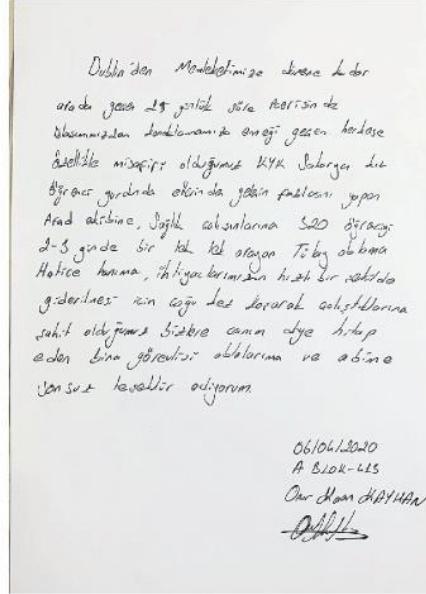 Dublin'den Memleketimize dönene kadar
arada geçen 25 günlük süre içerisinde
konaklamamıza emeği geçen herkese
özellikle misafiri olduğumuz KYK Sakarya kız
öğrenci yurdunda elinden gelen fazlasını yapan
Afad ekibine, Sağlık çalışanlarına 520 öğrenciyi
2-3 günde bir tek tek arayan Tülay ablama
Hatice hanıma, ihtiyaçlarımızın hızlı bir şekilde
giderilmesi için çoğu kez koşarak çalıştıklarına
şahit olduğumuz bizlere canım diye hitap
eden bina görevlisi ablalarıma ve abime
sonsuz teşekkür ediyorum.
06/04/2020
A BLOK-413
Onur KAYHAN